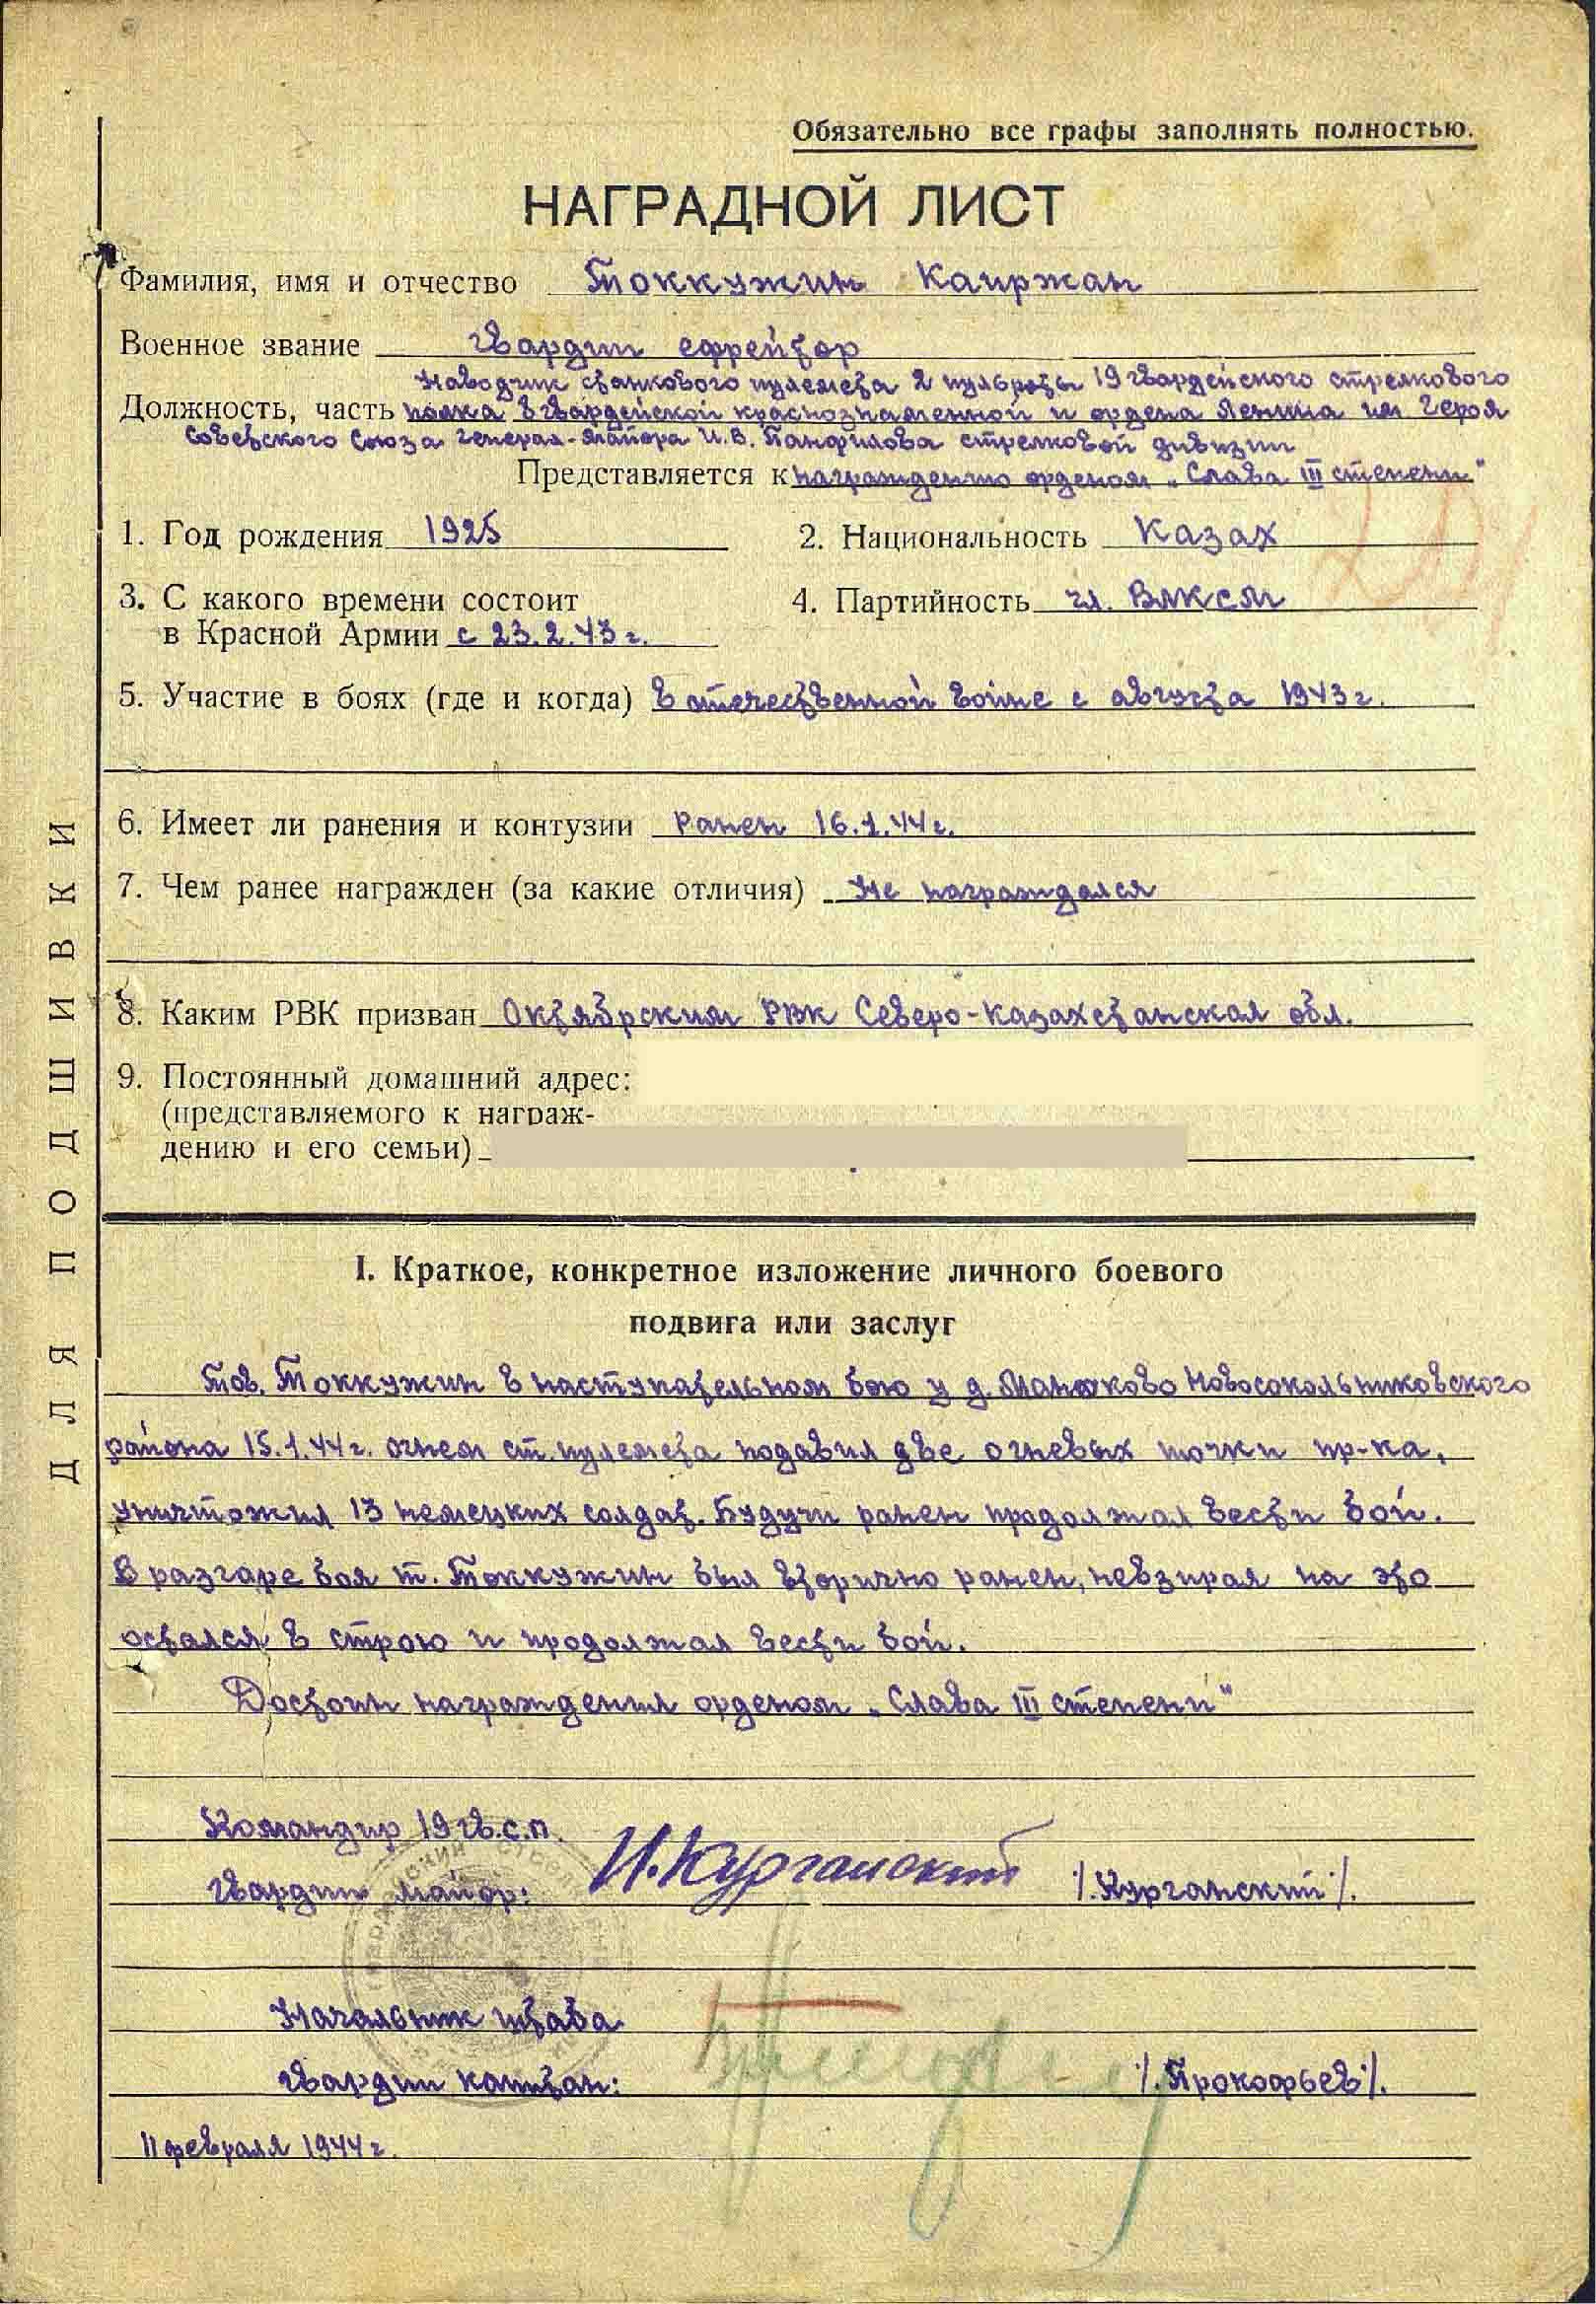 Обязательно все графы заполнять полностью.
НАГРАДНОЙ ЛИСТ
Фамилия, имя и отчество Токкужин Каиржан
Военное звание гвардии ефрейтор
Наводчик станкового пулемета 2 пульроты 19 гвардейского стрелкового
Должность, часть полка 8 гвардейской краснознаменной и ордена Ленина им Героя
Советского Союза генерал-майора И.В. Панфилова стрелковой дивизии
Представляется к награждению орденом „Слава III степени"
1. Год рождения 1925
2. Национальность Казах
3. С какого времени состоит
в Красной Армии с 23.2.43 г.
4. Партийность чл. ВЛКСМ
5. Участие в боях (где и когда) в отечественной войне с августа 1943 г.
6. Имеет ли ранения и контузии Ранен 16.1.44 г.
7. Чем ранее награжден (за какие отличия) Не награждался
8. Каким РВК призван Октябрским РВК Северо-Казахстанская обл.
9. Постоянный домашний адрес:
(представляемого к награж-
дению и его семьи)
ДЛЯ ПОДШИВКИ
I. Краткое, конкретное изложение личного боевого
подвига или заслуг
Тов. Токкужин в наступательном бою у д. Манаково Новосокольниковского
района 15.1.44 г. огнем ст. пулемета подавил две огневых точки пр-ка,
уничтожил 13 немецких солдат. Будучи ранен продолжал вести бой.
В разгаре боя т. Токкужин был вторично ранен, невзирая на это
остался в строю и продолжал вести бой.
Достоин награждения орденом „Слава III степени"
Командир 19 гв.с.п.
гвардии майор: И.Курганский /.Курганский/.
Начальник штаба
гвардии капитан: /.Прокофьев/.
11 февраля 1944 г.